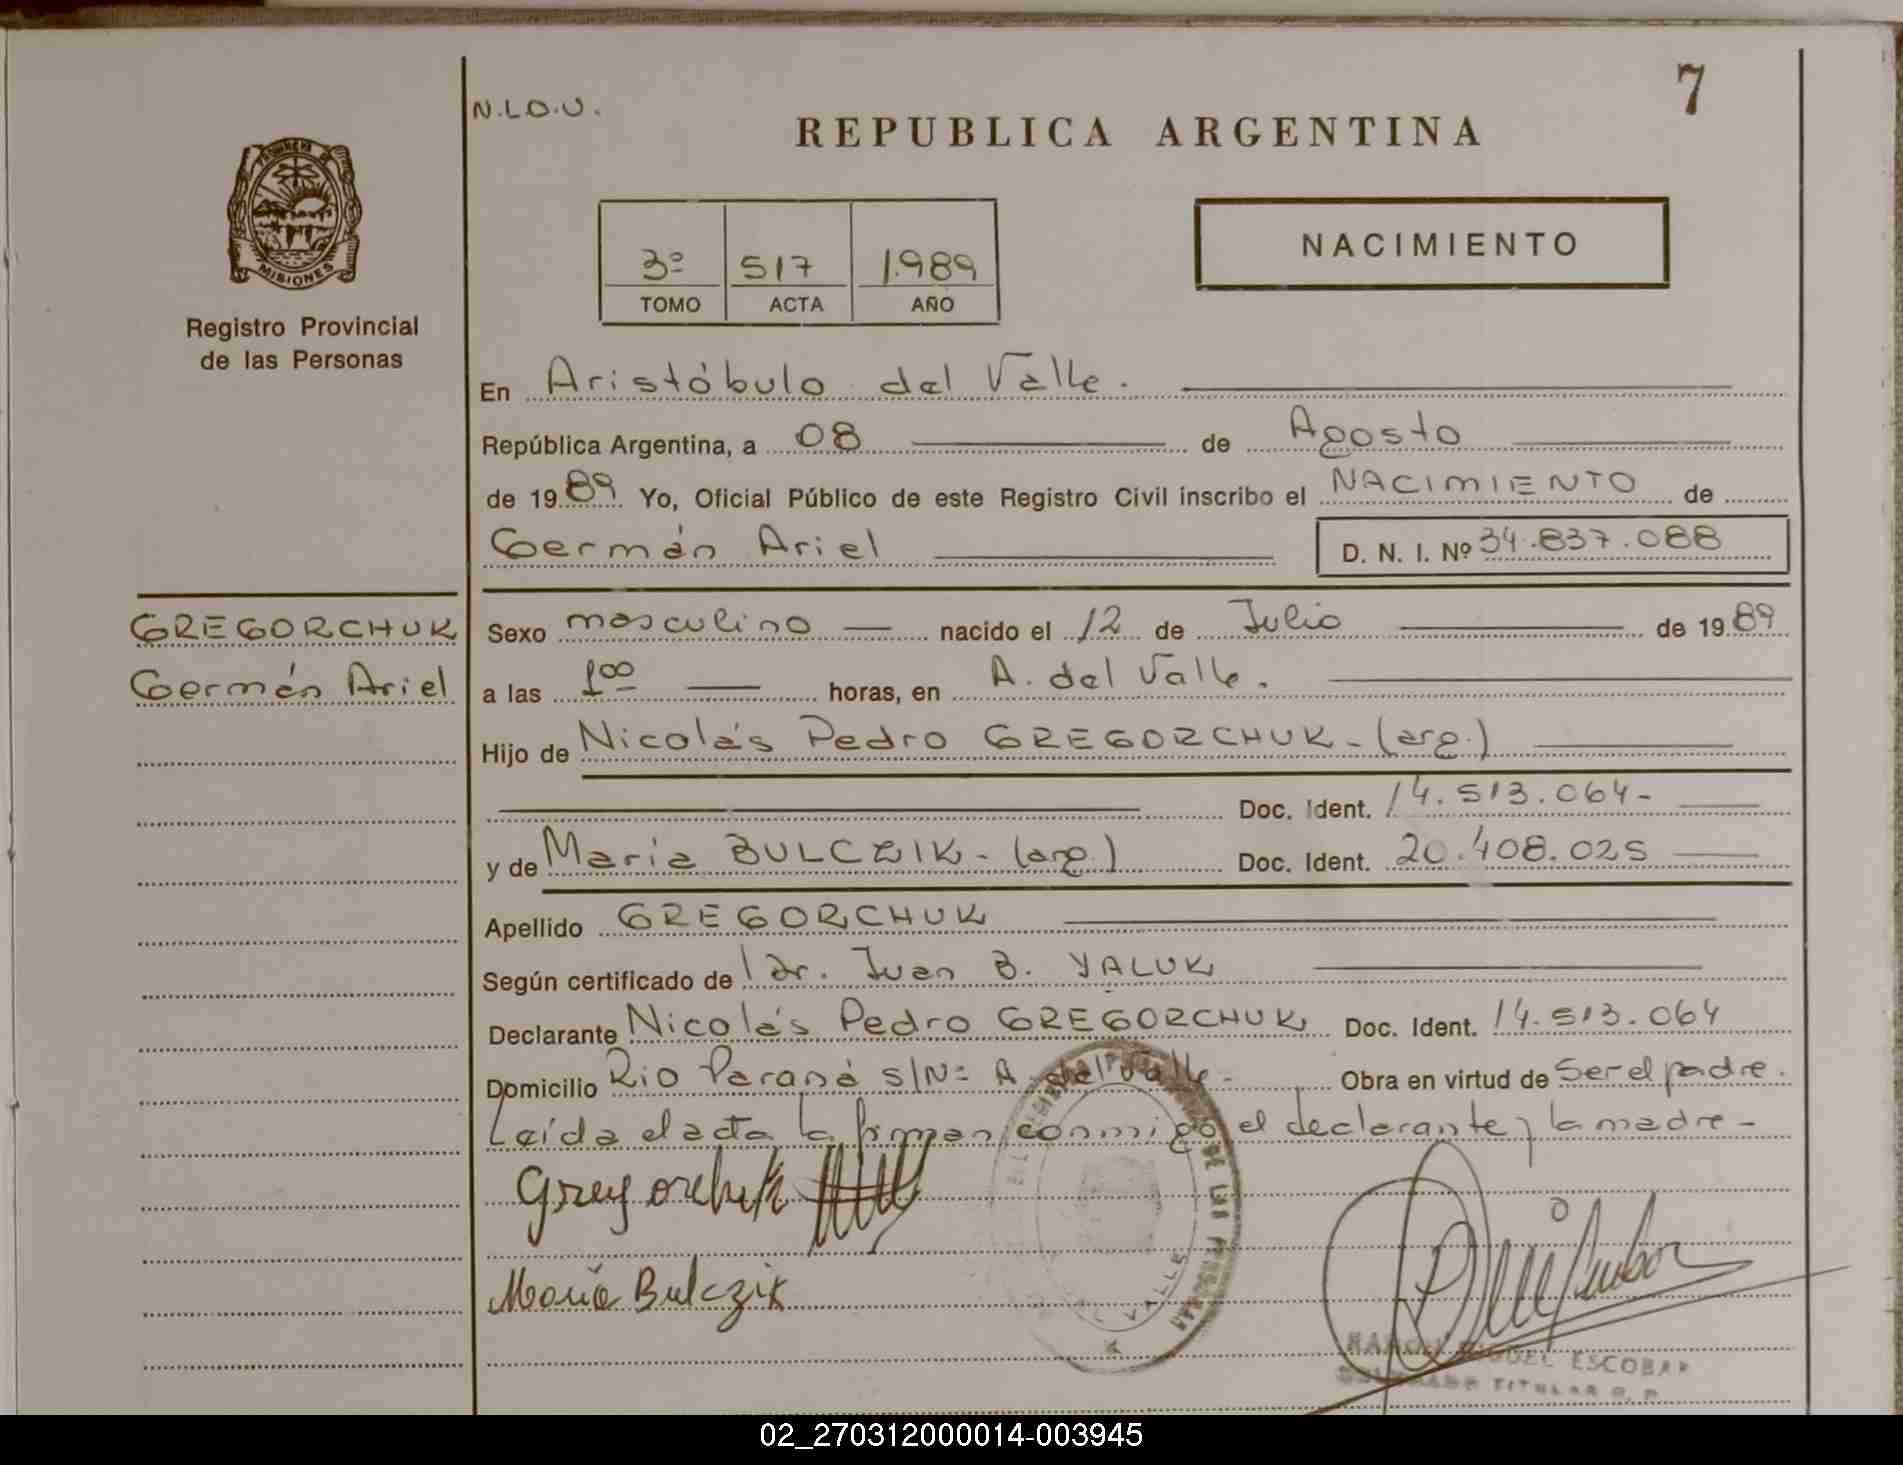 N.L.O.U.
7
REPUBLICA ARGENTINA
PROVINCIA DE
MISIONES
Registro Provincial
de las Personas
3º 517 1.989
TOMO ACTA AÑO
NACIMIENTO
En Aristóbulo del Valle.
República Argentina, a 08 de Agosto
de 1989 Yo, Oficial Público de este Registro Civil inscribo el NACIMIENTO de
Germán Ariel D. N. I. Nº 34.837.088
GREGORCHUK
Germán Ariel
Sexo masculino nacido el 12 de Julio de 1989
a las 100 horas, en A. del Valle.
Hijo de Nicolás Pedro GREGORCHUK - (arg.)
Doc. Ident. 14.513.064-
y de María BULCZIK - (arg.) Doc. Ident. 20.408.025
Apellido GREGORCHUK
Según certificado de Dr. Juan B. YALUK
Declarante Nicolás Pedro GREGORCHUK Doc. Ident. 14.513.064
Domicilio Río Paraná s/Nº A. del Valle - Obra en virtud de Ser el padre.
Leída el acta la firman conmigo el declarante y la madre -
Gregorchuk
María Bulczik
DE LAS
VALLE
ESCOBAR
TITULAR
02_270312000014-003945